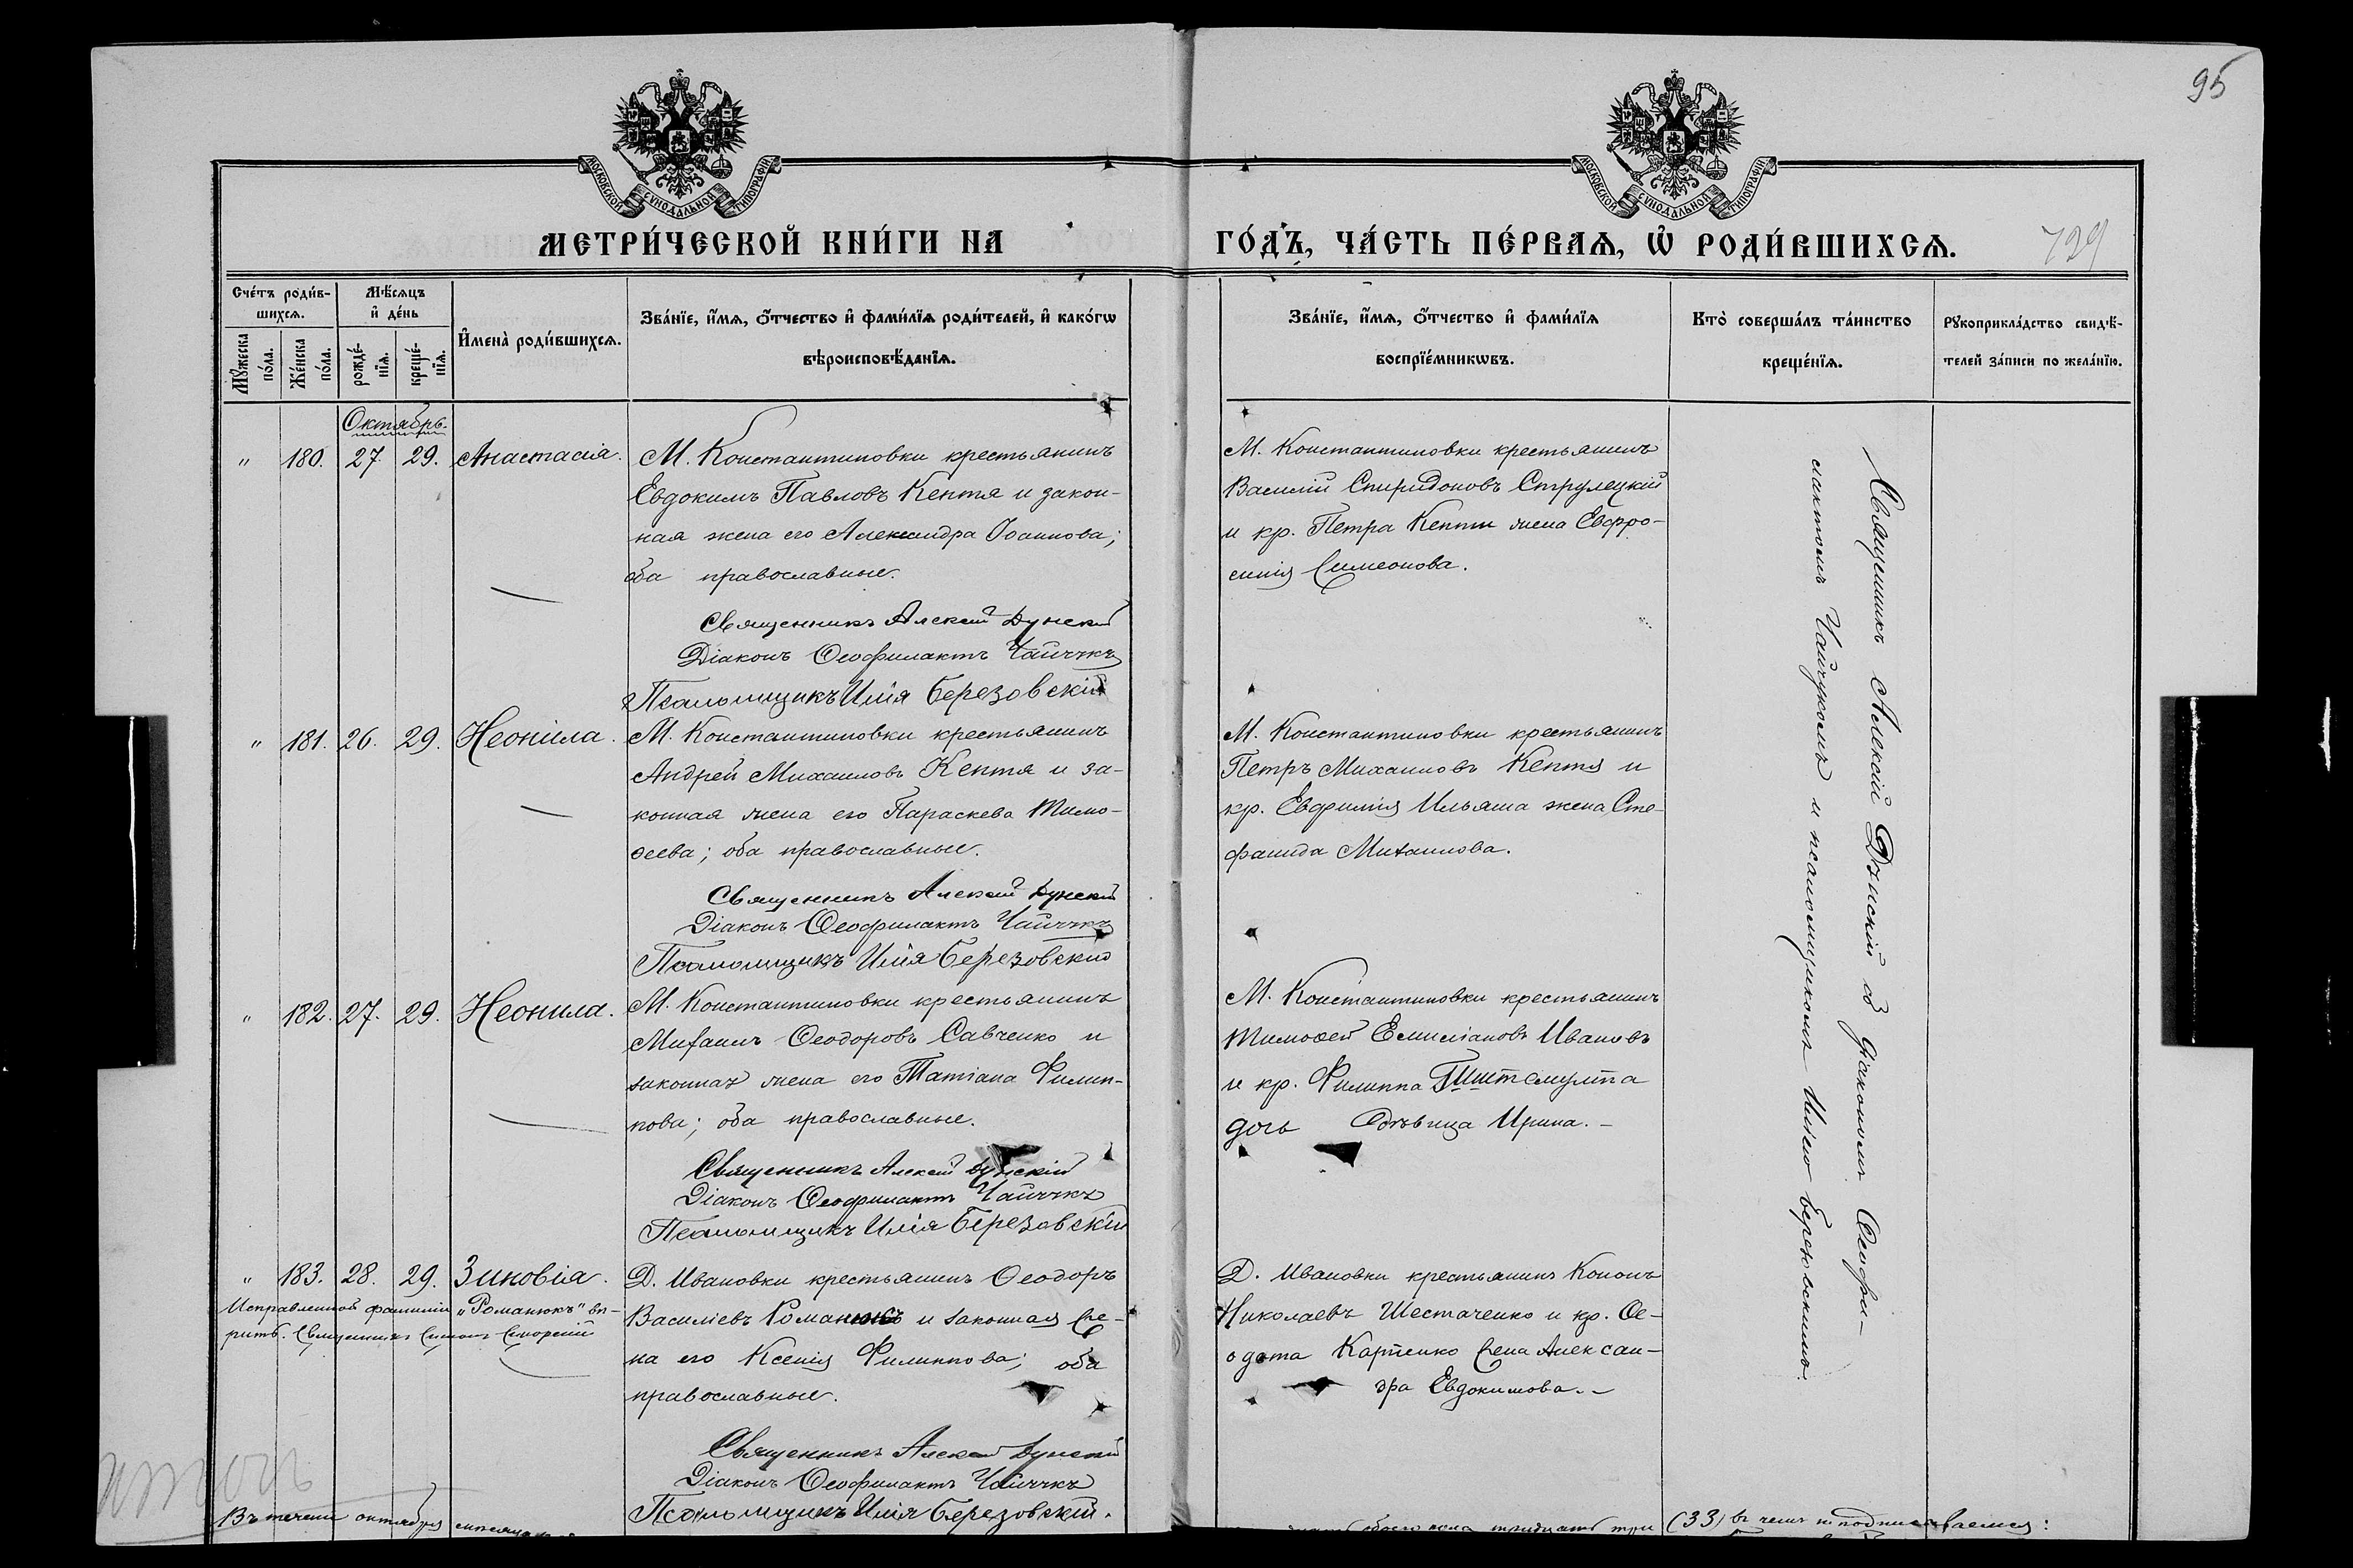 95
МОСКОВСКОЙ СѴНОДАЛЬНОЙ ТИПОГРАФІИ
МОСКОВСКОЙ СѴНОДАЛЬНОЙ ТИПОГРАФІИ
МЕТРИ́ЧЕСКОЙ КНИ́ГИ НА
ГО́ДЪ, ЧА́СТЬ ПЕ́РВАѦ, Ѡ РОДИ́ВШИХСѦ.
729
Сче́тъ роди́в-
шихсѧ.
Мꙋ́жеска
по́ла.
Же́нска
по́ла.
Мѣ́сѧцъ
и҆ де́нь
рожде́-
нїѧ.
креще́-
нїѧ.
И҆мена̀ роди́вшихсѧ.
Зва́нїе, и҆́мѧ, ѻ҆́тчество и҆ фами́лїѧ роди́телей, и҆ како́гѡ
вѣроисповѣ́данїѧ.
Зва́нїе, и҆́мѧ, ѻ҆́тчество и҆ фами́лїѧ
воспрїе́мникѡвъ.
Кто̀ соверша́лъ та́инство
креще́нїѧ.
Рꙋкоприкла́дство свидѣ́-
телей за́писи по жела́нїю.
Октябрь.
" 180. 27. 29. Анастасія.
М. Константиновки крестьянинъ
Евдокимъ Павловъ Кептя и закон-
ная жена его Александра Іоаннова;
оба православные.
Священникъ Алексій Дунскій
Діаконъ Ѳеофилактъ Чайчукъ
Псаломщикъ Илія Березовскій
М. Константиновки крестьянинъ
Василій Спиридоновъ Струлецкій
и кр. Петра Кепти жена Евфро-
синія Симеонова.
" 181. 26. 29. Неонила.
М. Константиновки крестьянинъ
Андрей Михаиловъ Кептя и за-
конная жена его Параскева Тимо-
ѳеева; оба православные.
Священникъ Алексій Дунскій
Діаконъ Ѳеофилактъ Чайчукъ
Псаломщикъ Илія Березовскій
М. Константиновки крестьянинъ
Петръ Михаиловъ Кептя и
кр. Евфимія Ильяша жена Сте-
фанида Михаилова.
" 182. 27. 29. Неонила.
М. Константиновки крестьянинъ
Михаилъ Ѳеодоровъ Савченко и
законная жена его Татіана Филип-
пова; оба православные.
Священникъ Алексій Дунскій
Діаконъ Ѳеофилактъ Чайчукъ
Псаломщикъ Илія Березовскій
М. Константиновки крестьянинъ
Тимоѳей Емиліановъ Ивановъ
и кр. Филиппа
дочь дѣвица Ирина.-
" 183. 28. 29. Зиновія.
Исправленной фамиліи „Романюкъ" вѣ-
рить. Священникъ
Д. Ивановки крестьянинъ Ѳеодоръ
Василіевъ Романюкъ и законная же-
на его Ксенія Филиппова; оба
православные.
Священникъ Алексій Дунскій
Діаконъ Ѳеофилактъ Чайчукъ
Псаломщикъ Илія Березовскій.
Д. Ивановки крестьянинъ Кононъ
Николаевъ Шестаченко и кр. Ѳе-
одота Карпенко жена Алексан-
дра Евдокимова.-
Священникъ Алексій Дунскій съ діакономъ Ѳеофи-
лактомъ Чайчукомъ и псаломщикомъ Иліею Березовскимъ.
итогъ
Въ теченіи октября мѣсяца
обоего пола тридцать три (33) въ чемъ и подписываемся: